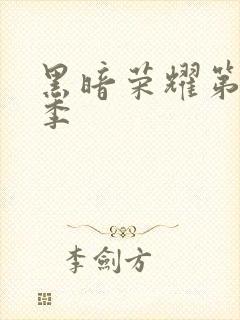 黑暗荣耀第
季
李劍方